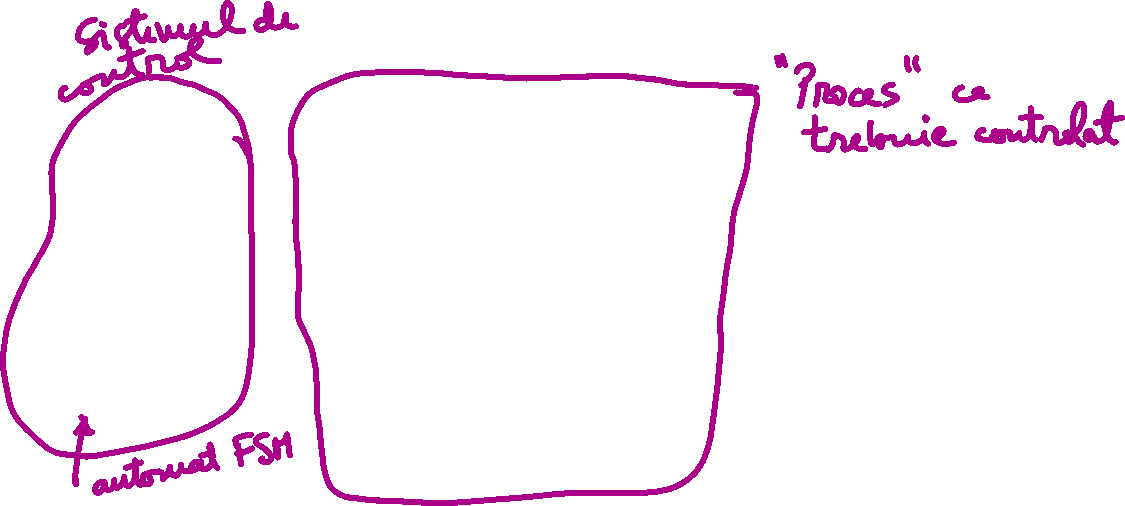 Sistemul de
control
"Proces" ce
trebuie controlat
automat FSM